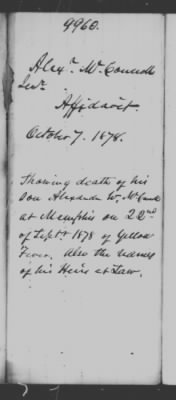 9960.
Alexr. McConnell
Senr.
Affidavit.
October 7. 1878.
Showing death of his
Son Alexander W. McConnell
at Memphis on 22nd
of Sept. 1878 of Yellow
Fever. Also the names
of his Heirs at Law.